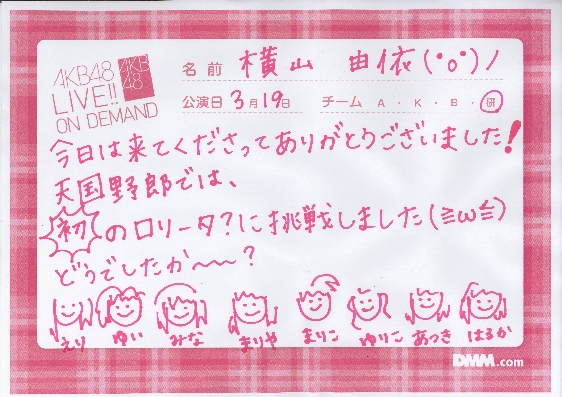 AKB48
LIVE!!
ON DEMAND
AKB
48
名前 横山 由依(°o°)ノ
公演日 3月19日 チーム A・K・B・研
今日は来てくださってありがとうございました!
天国野郎では、
初のロリータ?に挑戦しました(≧ω≦)
どうでしたか〜〜?
えり ゆい みな まりや まりこ ゆりこ あつき はるか
DMM.com